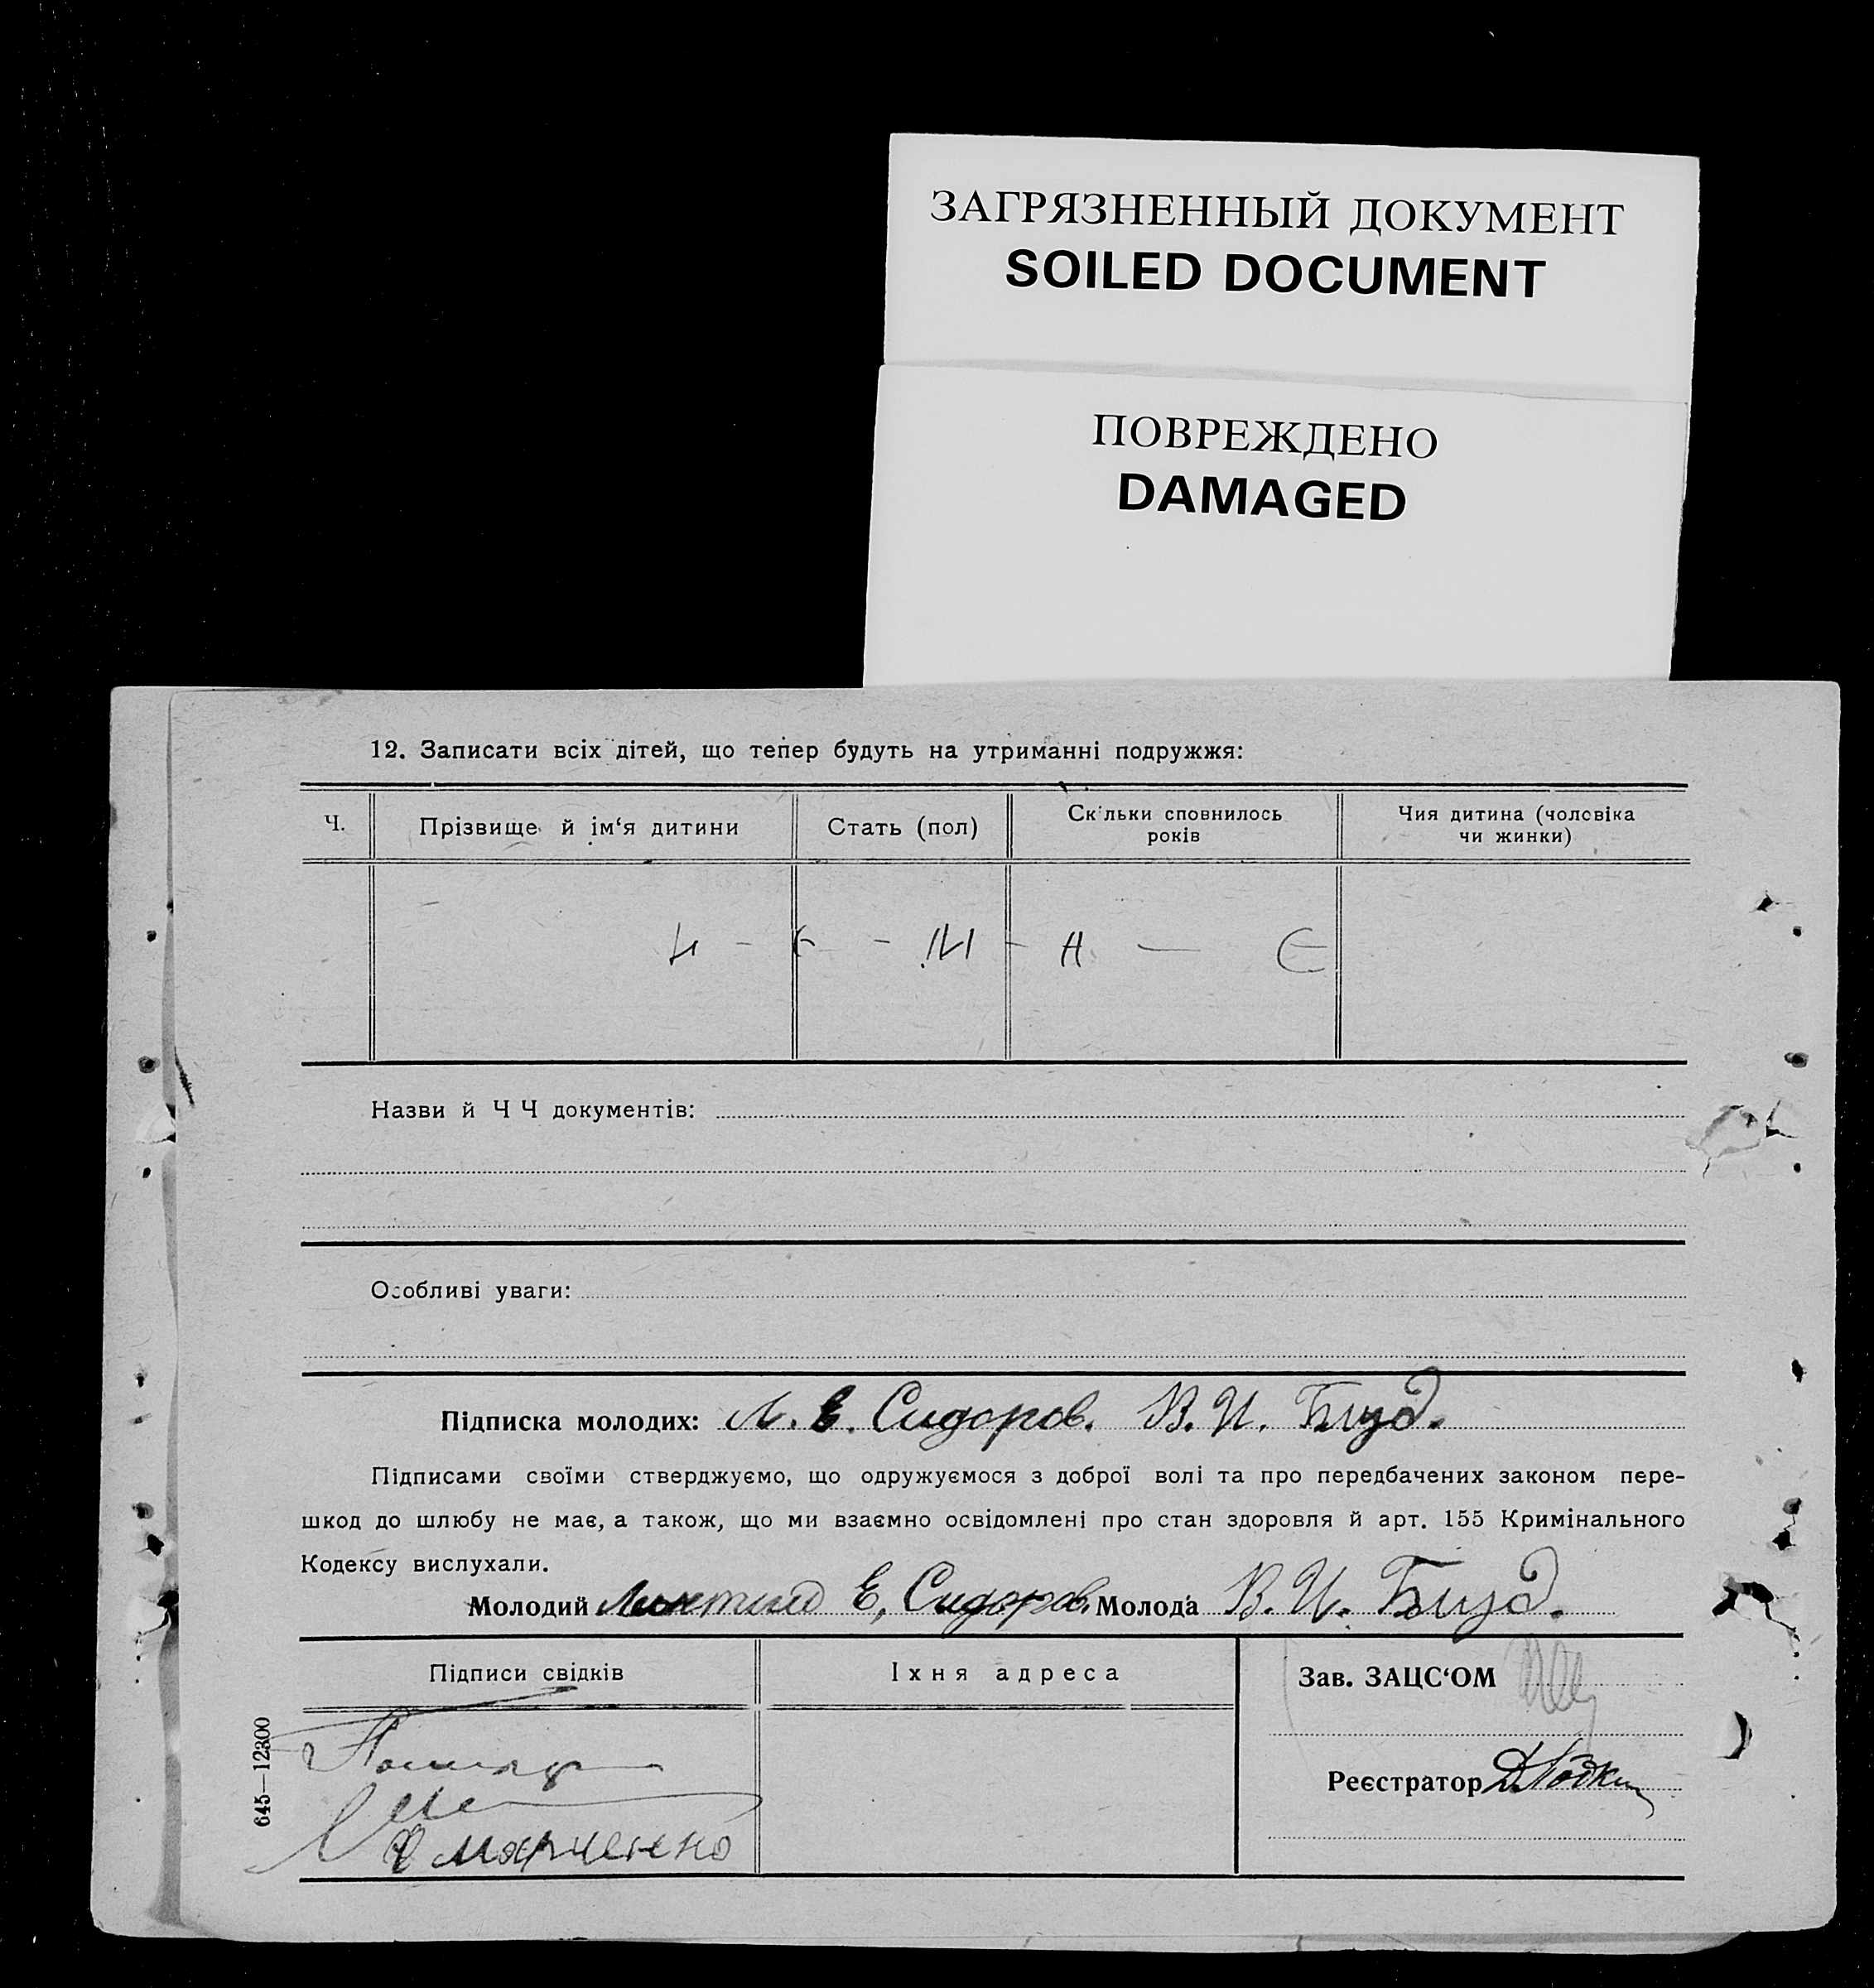 ЗАГРЯЗНЕННЫЙ ДОКУМЕНТ
SOILED DOCUMENT
ПОВРЕЖДЕНО
DAMAGED
12. Записати всіх дітей, що тепер будуть на утриманні подружжя:
Ч.
Прізвище й ім‘я дитини
Стать (пол)
Скільки сповнилось
років
Чия дитина (чоловіка
чи жинки)
Н - Е - М - А - Є
Назви й Ч Ч документів:
Особливі уваги:
Підписка молодих: Л. Е. Сидоров. В. И. Бузд.
Підписами своїми стверджуємо, що одружуємося з доброї волі та про передбачених законом пере-
шкод до шлюбу не має, а також, що ми взаємно освідомлені про стан здоровля й арт. 155 Кримінального
Кодексу вислухали.
Молодий Е. Сидоров. Молода В. И.
Підписи свідків
Їхня адреса
Зав. ЗАЦС‘ОМ
Реєстратор
Марченко
645—12300